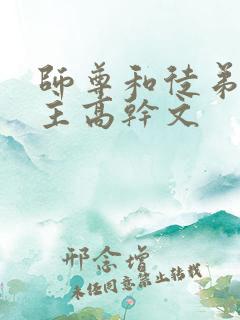 師尊和徒弟
主高幹文
邢念增
未經同意禁止轉載